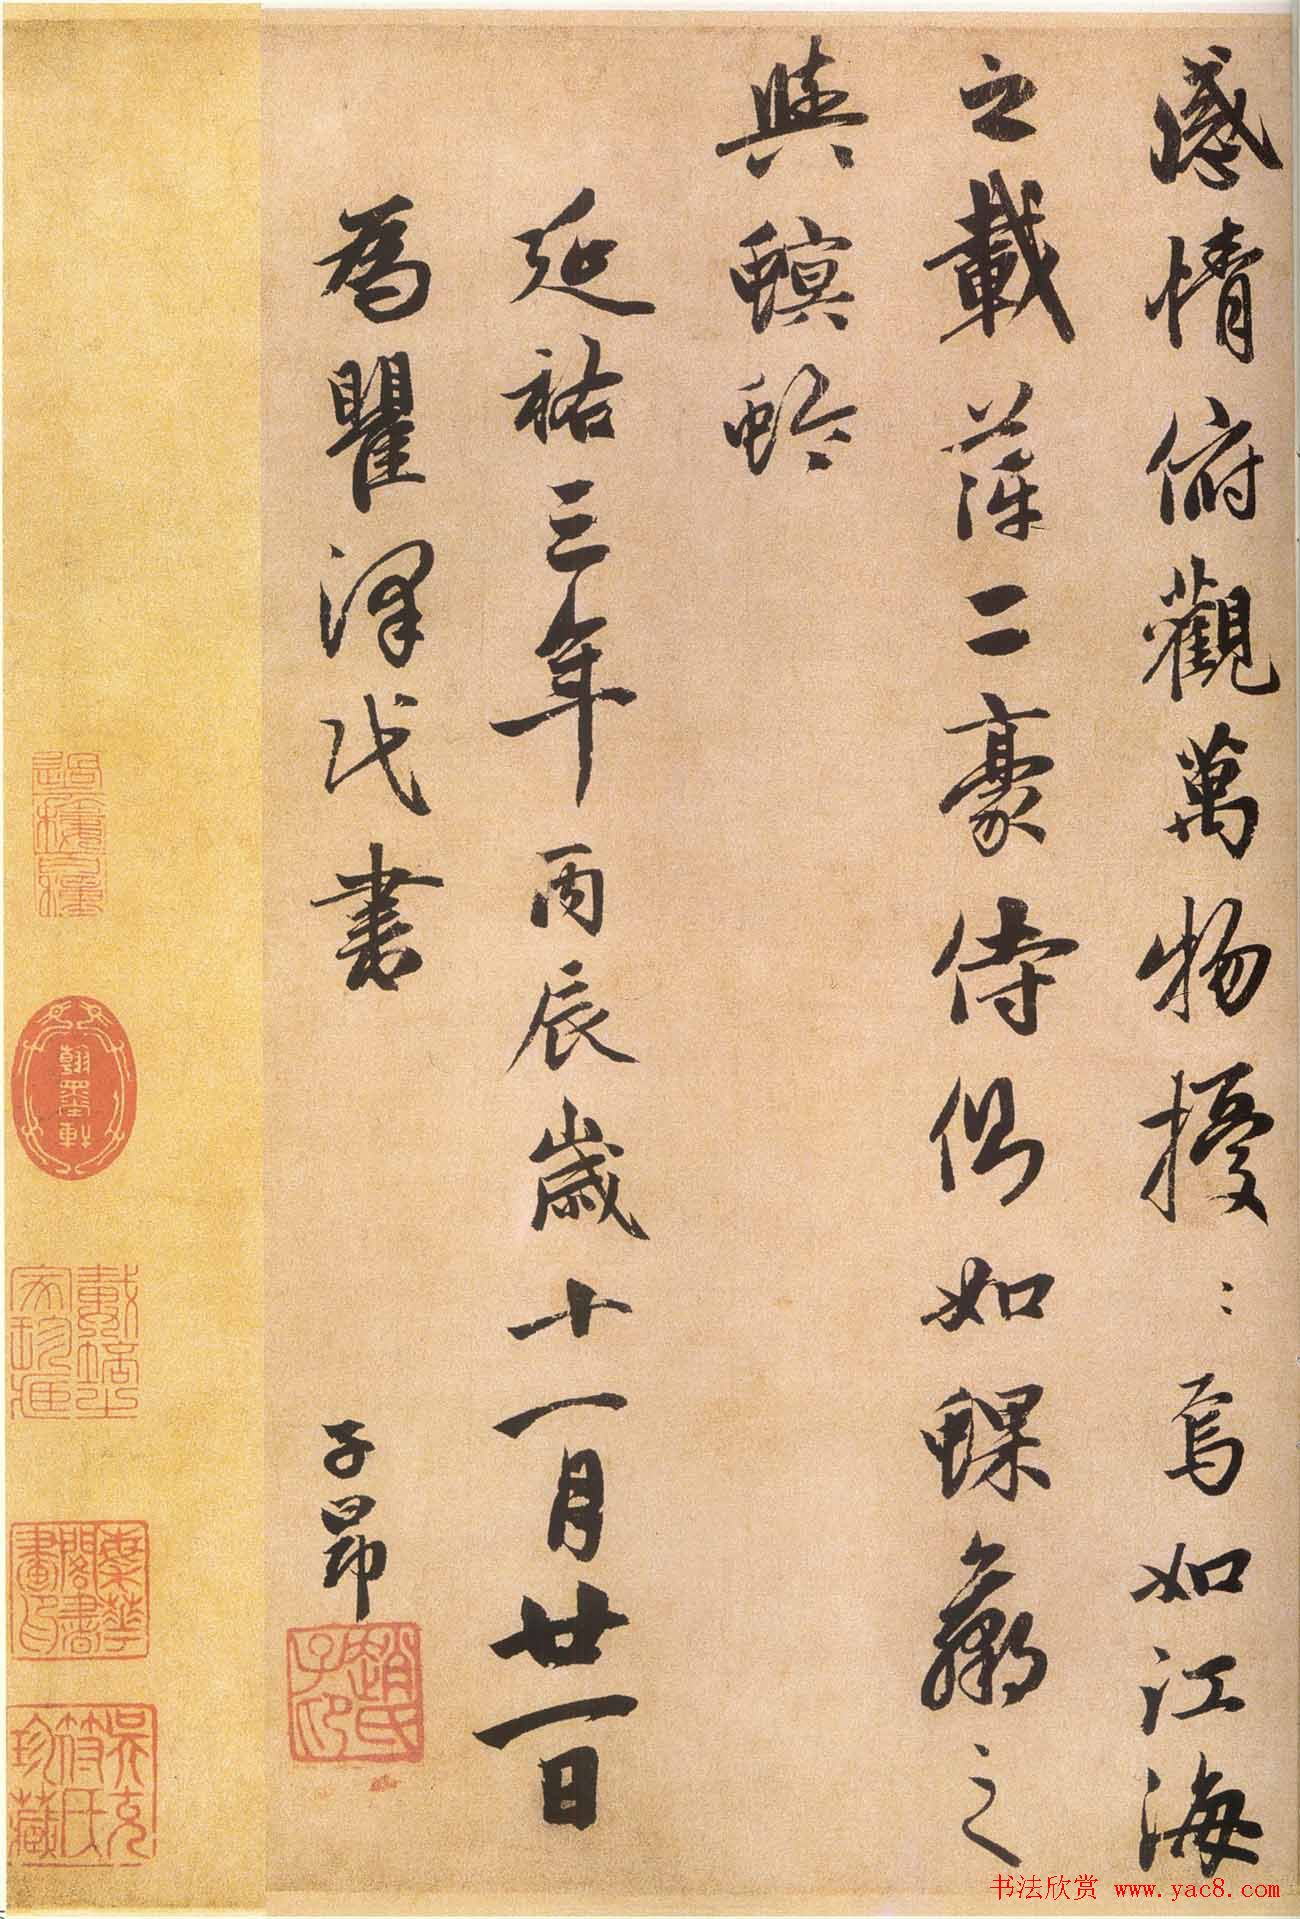 感情俯觀萬物擾〻焉如江海
之載萍二豪侍側如蜾蠃之
與螟蛉
延祐三年丙辰歲十一月廿一日
為瞿澤民書
子昂
趙氏子印
翰墨軒
書法欣賞 www.yac8.com